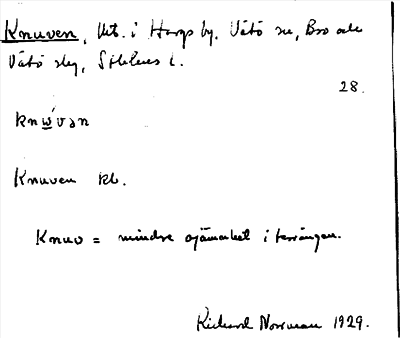 Knuven, Urt. i Harg by. Vätö sn, Bro och
Vätö slg, Sthlms l.
28.
knẃvən
Knuven kl.
Knuv = mindre ojämnhet i terrängen.
Rickard Norrman 1929.